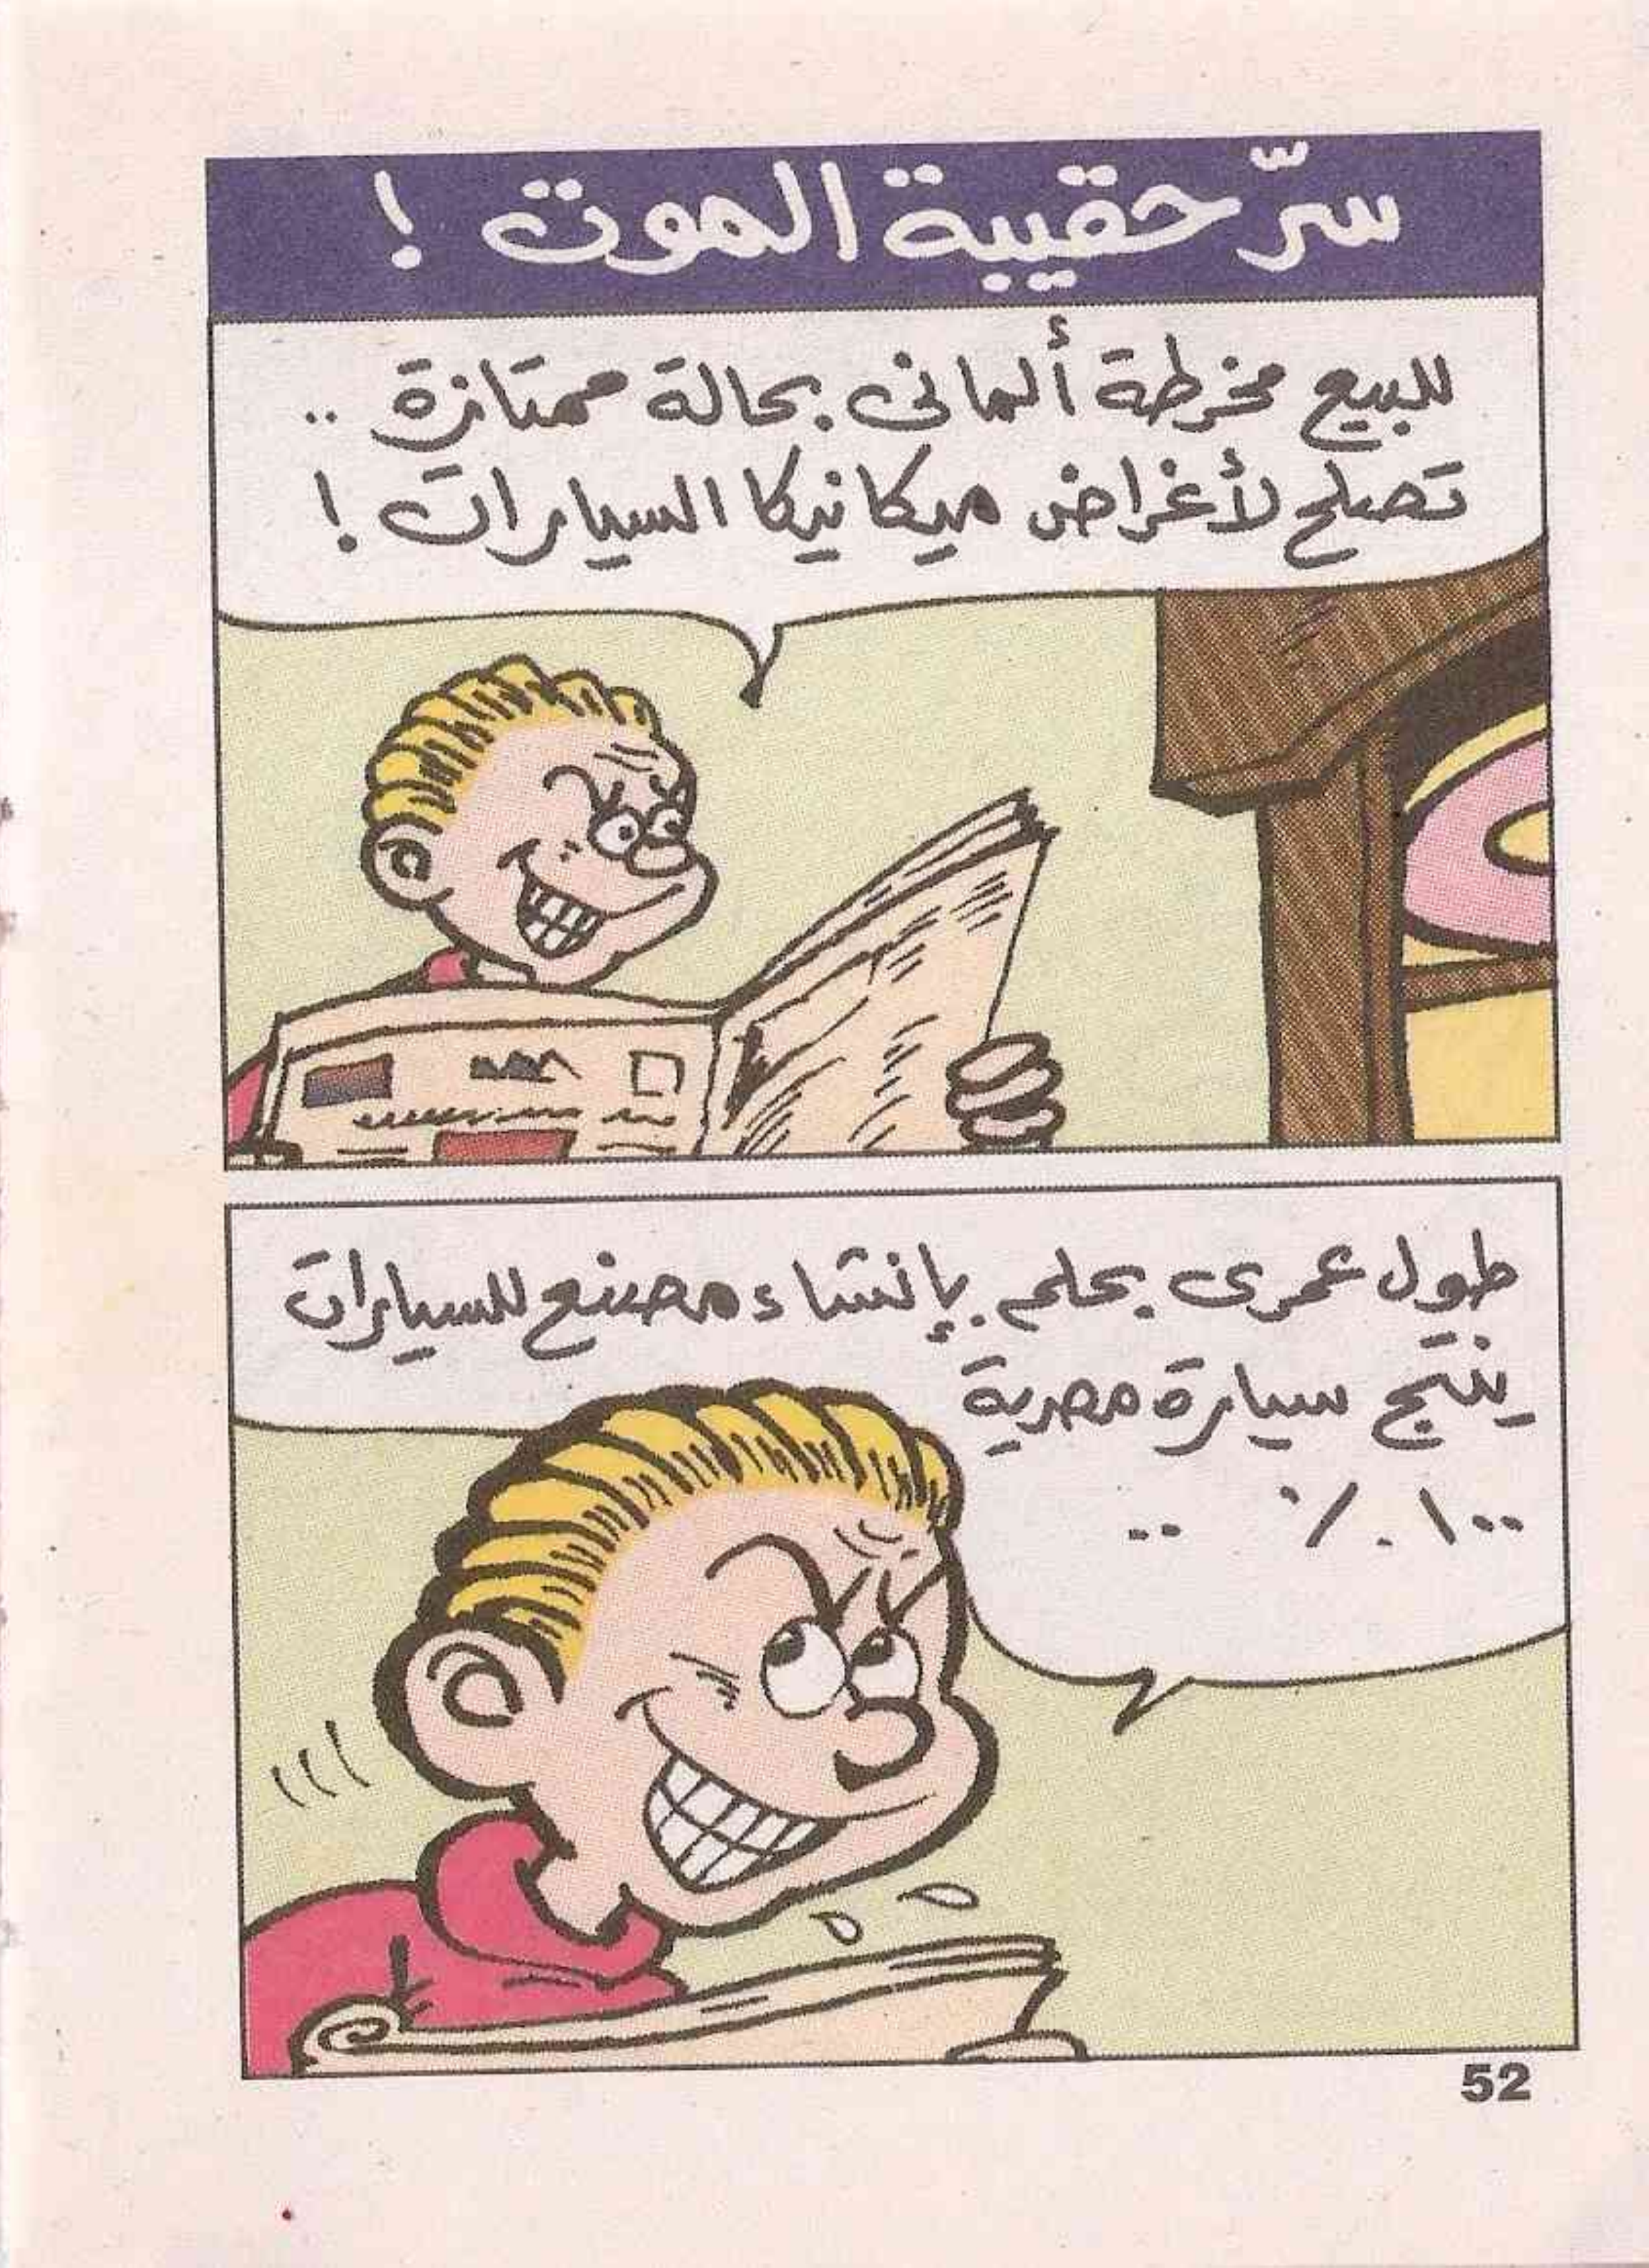 سرّ حقيبة الموت !
للبيع مخرطة ألمانى بحالة ممتازة ..
تصلح لأغراض ميكانيكا السيارات !
طول عمرى بحلم بإنشاء مصنع للسيارات
ينتج سيارة مصرية
١٠٠٪ ..
52